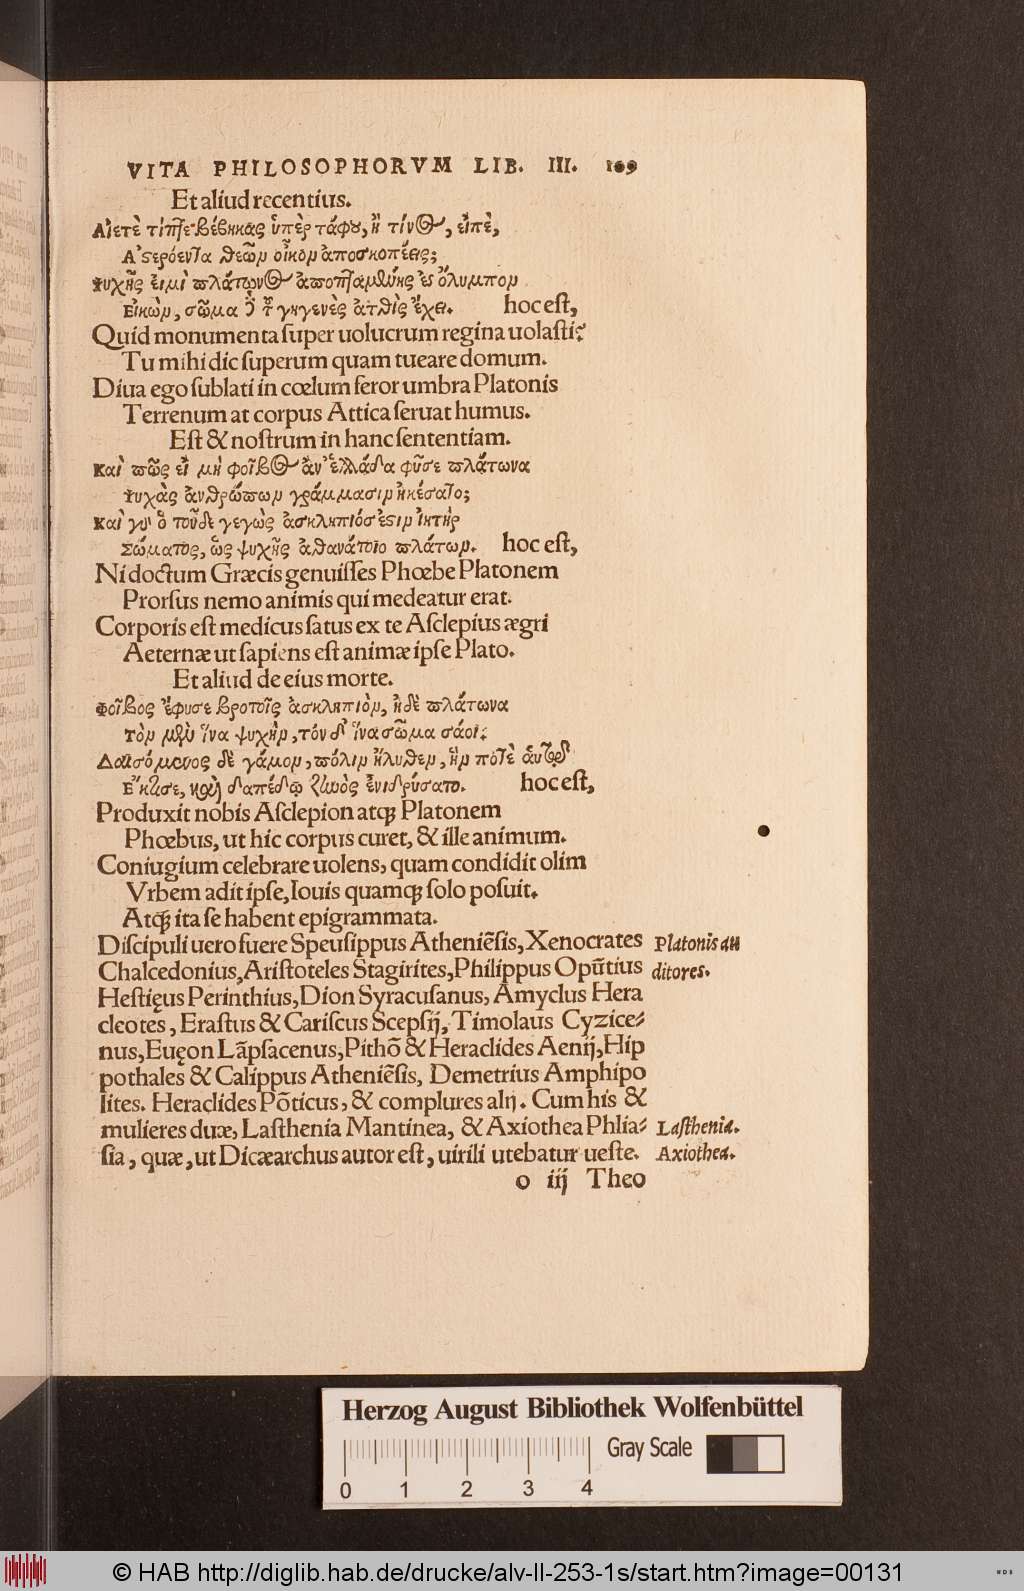 VITA PHILOSOPHORVM LIB. III. 109
Et aliud recentius.
Αἰετὲ τίπτε βέβηκας ὑπὲρ τάφου, ἢ τίνος, εἰπὲ,
Ἀστερόεντα θεῶν οἶκον ἀποσκοπέεις;
Ψυχῆς εἰμὶ πλάτωνος ἀποπταμένης ἐς ὄλυμπον
Εἰκὼν, σῶμα δὲ γῆ γηγενὲς ἀτθὶς ἔχει. hoc est,
Quid monumenta super uolucrum regina uolasti?
Tu mihi dic superum quam tueare domum.
Diua ego sublati in cœlum feror umbra Platonis
Terrenum at corpus Attica seruat humus.
Est & nostrum in hanc sententiam.
Καὶ πῶς εἰ μὴ φοῖβος ἀν' ἑλλάδα φῦσε πλάτωνα
Ψυχὰς ἀνθρώπων γράμμασιν ἠκέσατο;
Καὶ γὰρ ὁ τοῦδε γεγὼς ἀσκληπιός ἐστιν ἰητὴρ
Σώματος, ὡς ψυχῆς ἀθανάτοιο πλάτων. hoc est,
Ni doctum Græcis genuisses Phœbe Platonem
Prorsus nemo animis qui medeatur erat.
Corporis est medicus satus ex te Asclepius ægri
Aeternæ ut sapiens est animæ ipse Plato.
Et aliud de eius morte.
Φοῖβος ἔφυσε βροτοῖς ἀσκληπιὸν, ἠδὲ πλάτωνα
Τὸν μὲν ἵνα ψυχὴν, τόν δ' ἵνα σῶμα σάοι:
Δαισόμενος δὲ γάμον, πόλιν ἤλυθεν, ἥν ποτὲ αὑτῷ
Ἔκτισε, καὶ δαπέδῳ ζηνὸς ἐνιδρύσατο. hoc est,
Produxit nobis Asclepion atq; Platonem
Phœbus, ut hic corpus curet, & ille animum.
Coniugium celebrare uolens, quam condidit olim
Vrbem adit ipse, Iouis quamq; solo posuit.
Atq; ita se habent epigrammata.
Discipuli uero fuere Speusippus Atheniẽsis, Xenocrates Platonis au
Chalcedonius, Aristoteles Stagirites, Philippus Opũtius ditores.
Hestięus Perinthius, Dion Syracusanus, Amyclus Hera
cleotes, Erastus & Cariscus Scepsij, Timolaus Cyzice-
nus, Euęon Lãpsacenus, Pithõ & Heraclides Aenij, Hip
pothales & Calippus Atheniẽsis, Demetrius Amphipo
lites. Heraclides Põticus, & complures alij. Cum his &
mulieres duæ, Lasthenia Mantinea, & Axiothea Phlia- Lasthenia.
sia, quæ, ut Dicæarchus autor est, uirili utebatur ueste. Axiothea.
o iij Theo
Herzog August Bibliothek Wolfenbüttel
Gray Scale
0 1 2 3 4
© HAB http://diglib.hab.de/drucke/alv-ll-253-1s/start.htm?image=00131